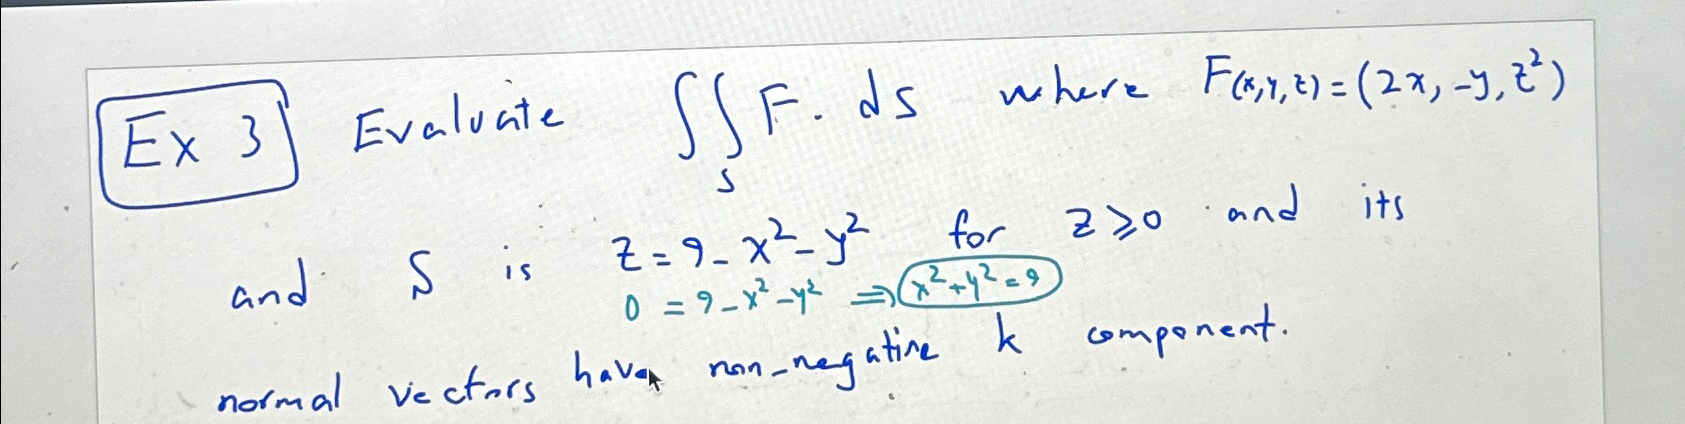 Ex 3 Evaluate ∬_S F. ds where F(x,y,z) = (2x, -y, z²)
and S is z = 9 - x² - y² for z ≥ 0 and its
0 = 9 - x² - y² ⇒ x² + y² = 9
normal vectors have non-negative k component.